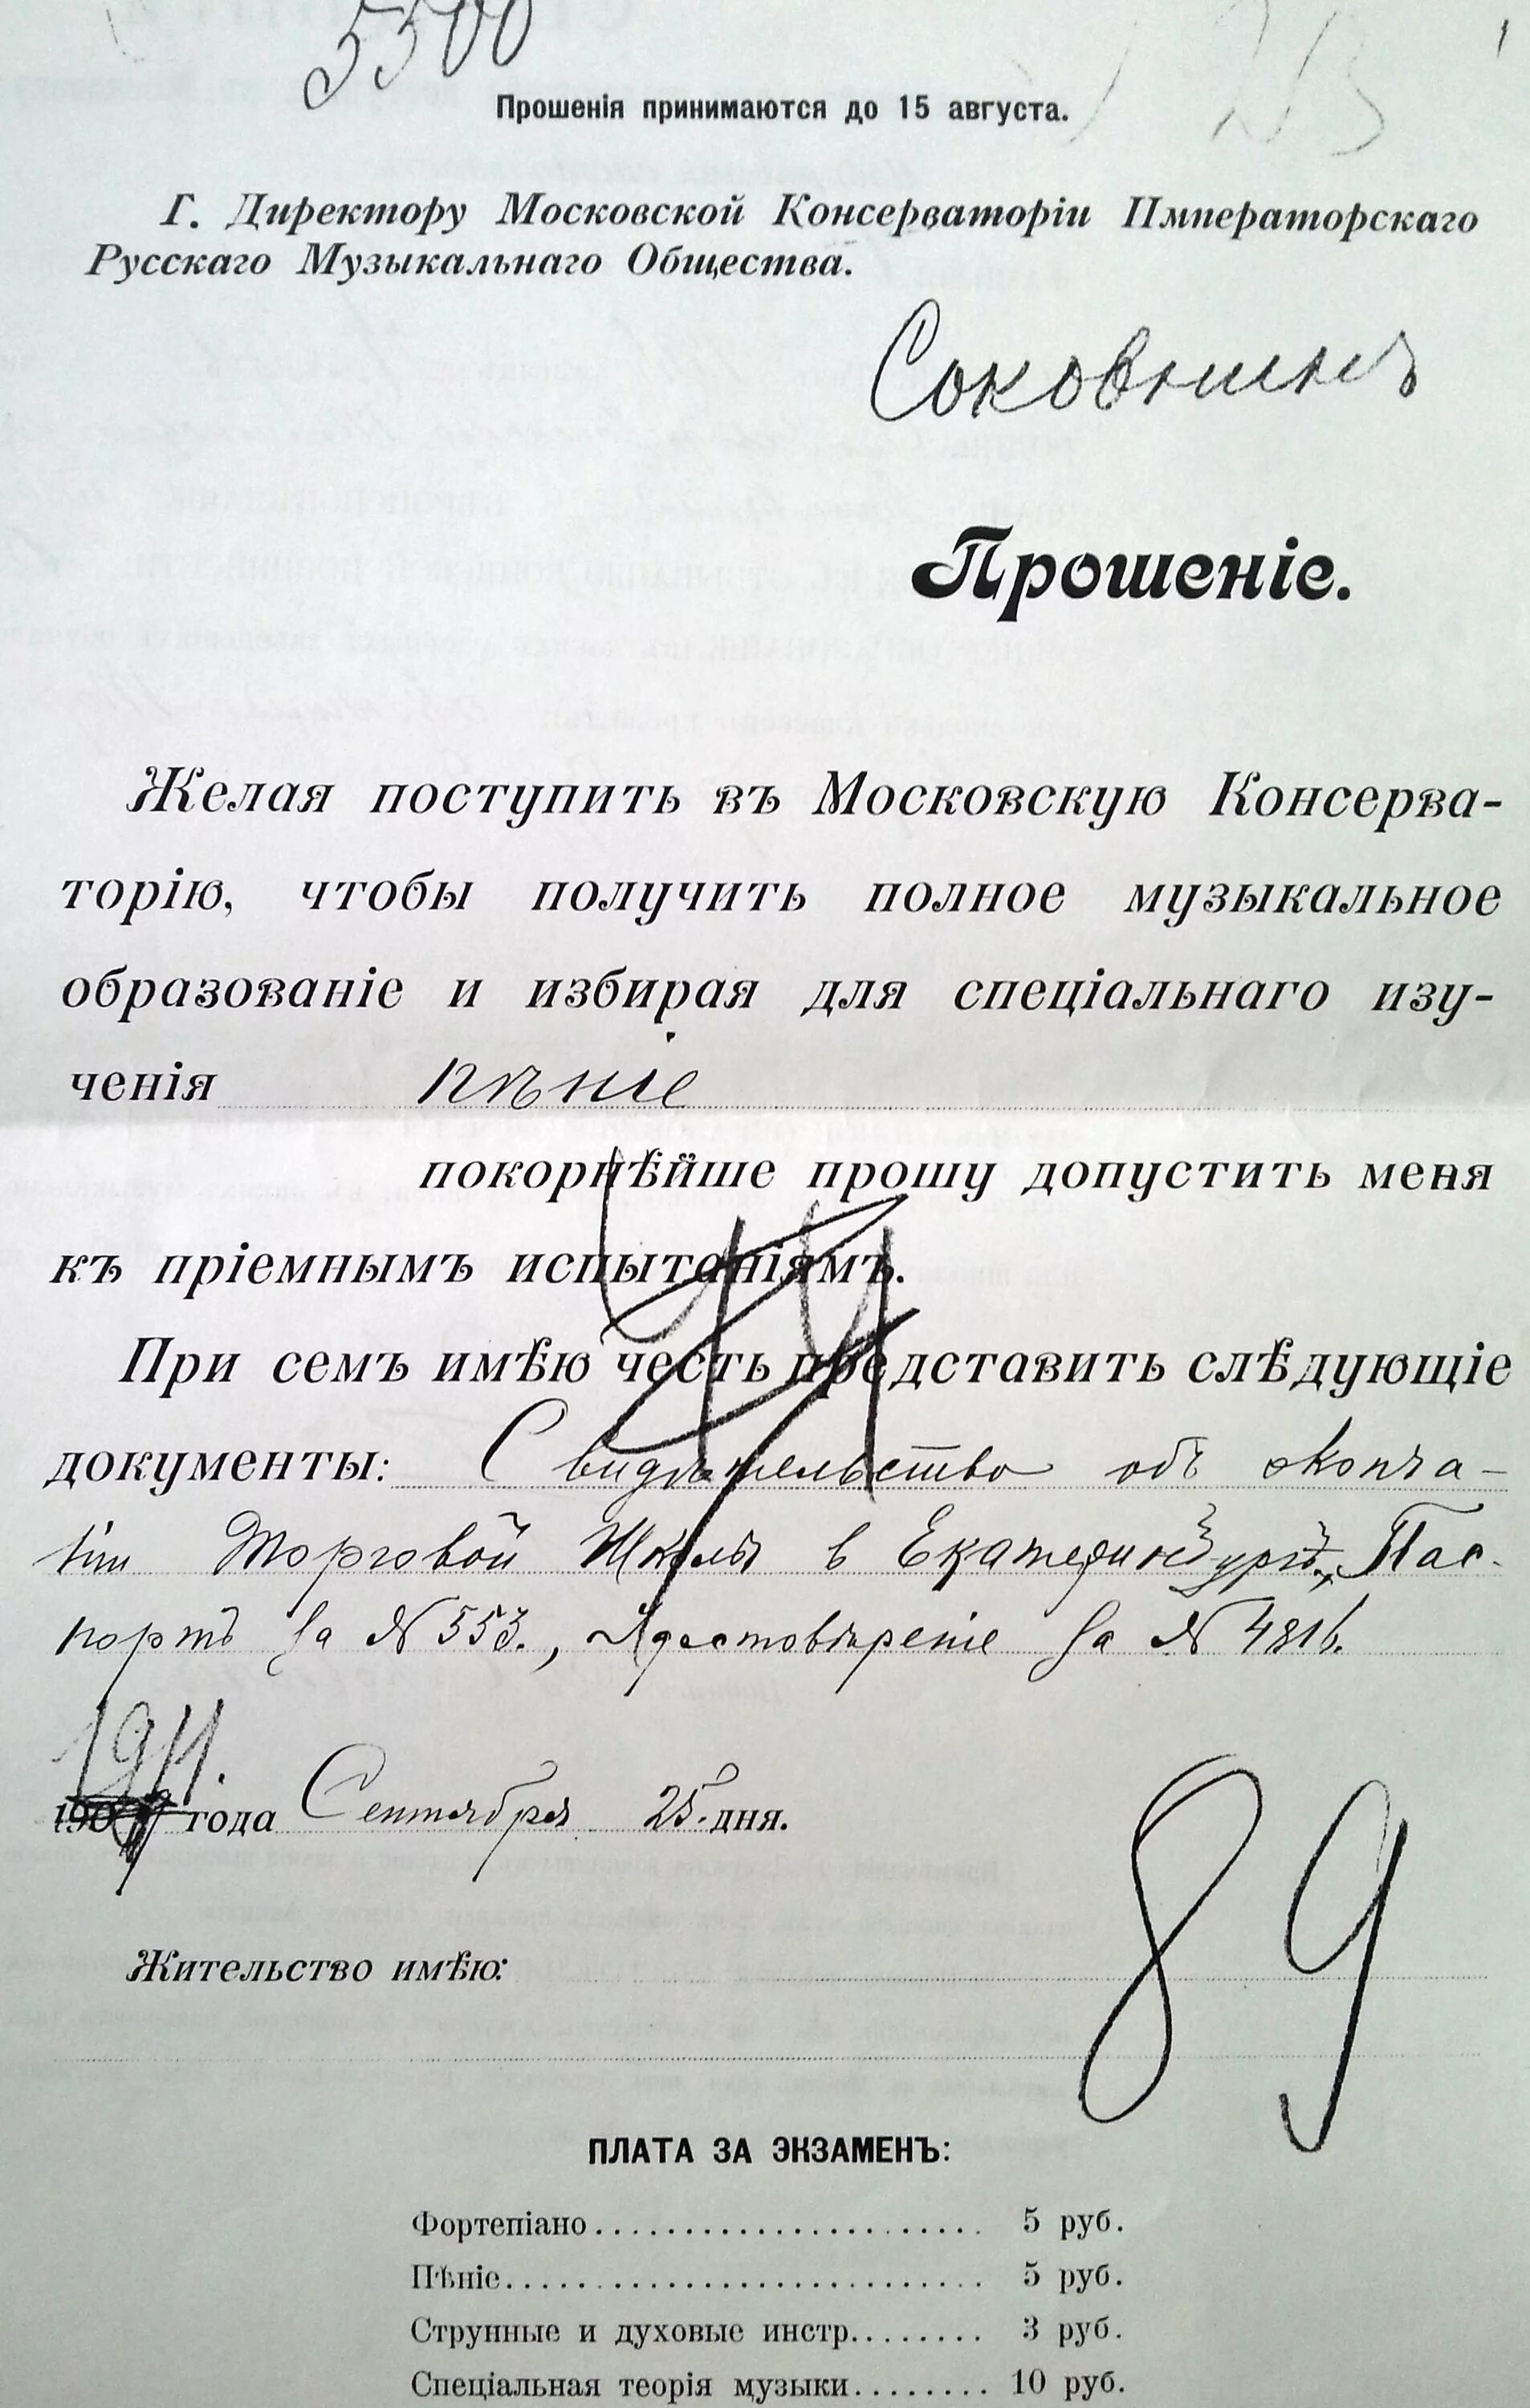 5500
Прошенія принимаются до 15 августа.
Г. Директору Московской Консерваторіи Императорскаго
Русскаго Музыкальнаго Общества.
Соковнинъ
Прошеніе.
Желая поступить въ Московскую Консерва-
торію, чтобы получить полное музыкальное
образованіе и избирая для спеціальнаго изу-
ченія пѣніе
покорнѣйше прошу допустить меня
къ пріемнымъ испытаніямъ.
При семъ имѣю честь представить слѣдующіе
документы: Свидѣтельство объ оконча-
ніи Торговой Школы в Екатеринбургѣ, Пас-
портъ за № 553., Удостовѣреніе за № 4816.
1911.
190 года Сентября 25 дня.
89
Жительство имѣю:
ПЛАТА ЗА ЭКЗАМЕНЪ:
Фортепіано 5 руб.
Пѣніе 5 руб.
Струнные и духовые инстр. 3 руб.
Спеціальная теорія музыки 10 руб.